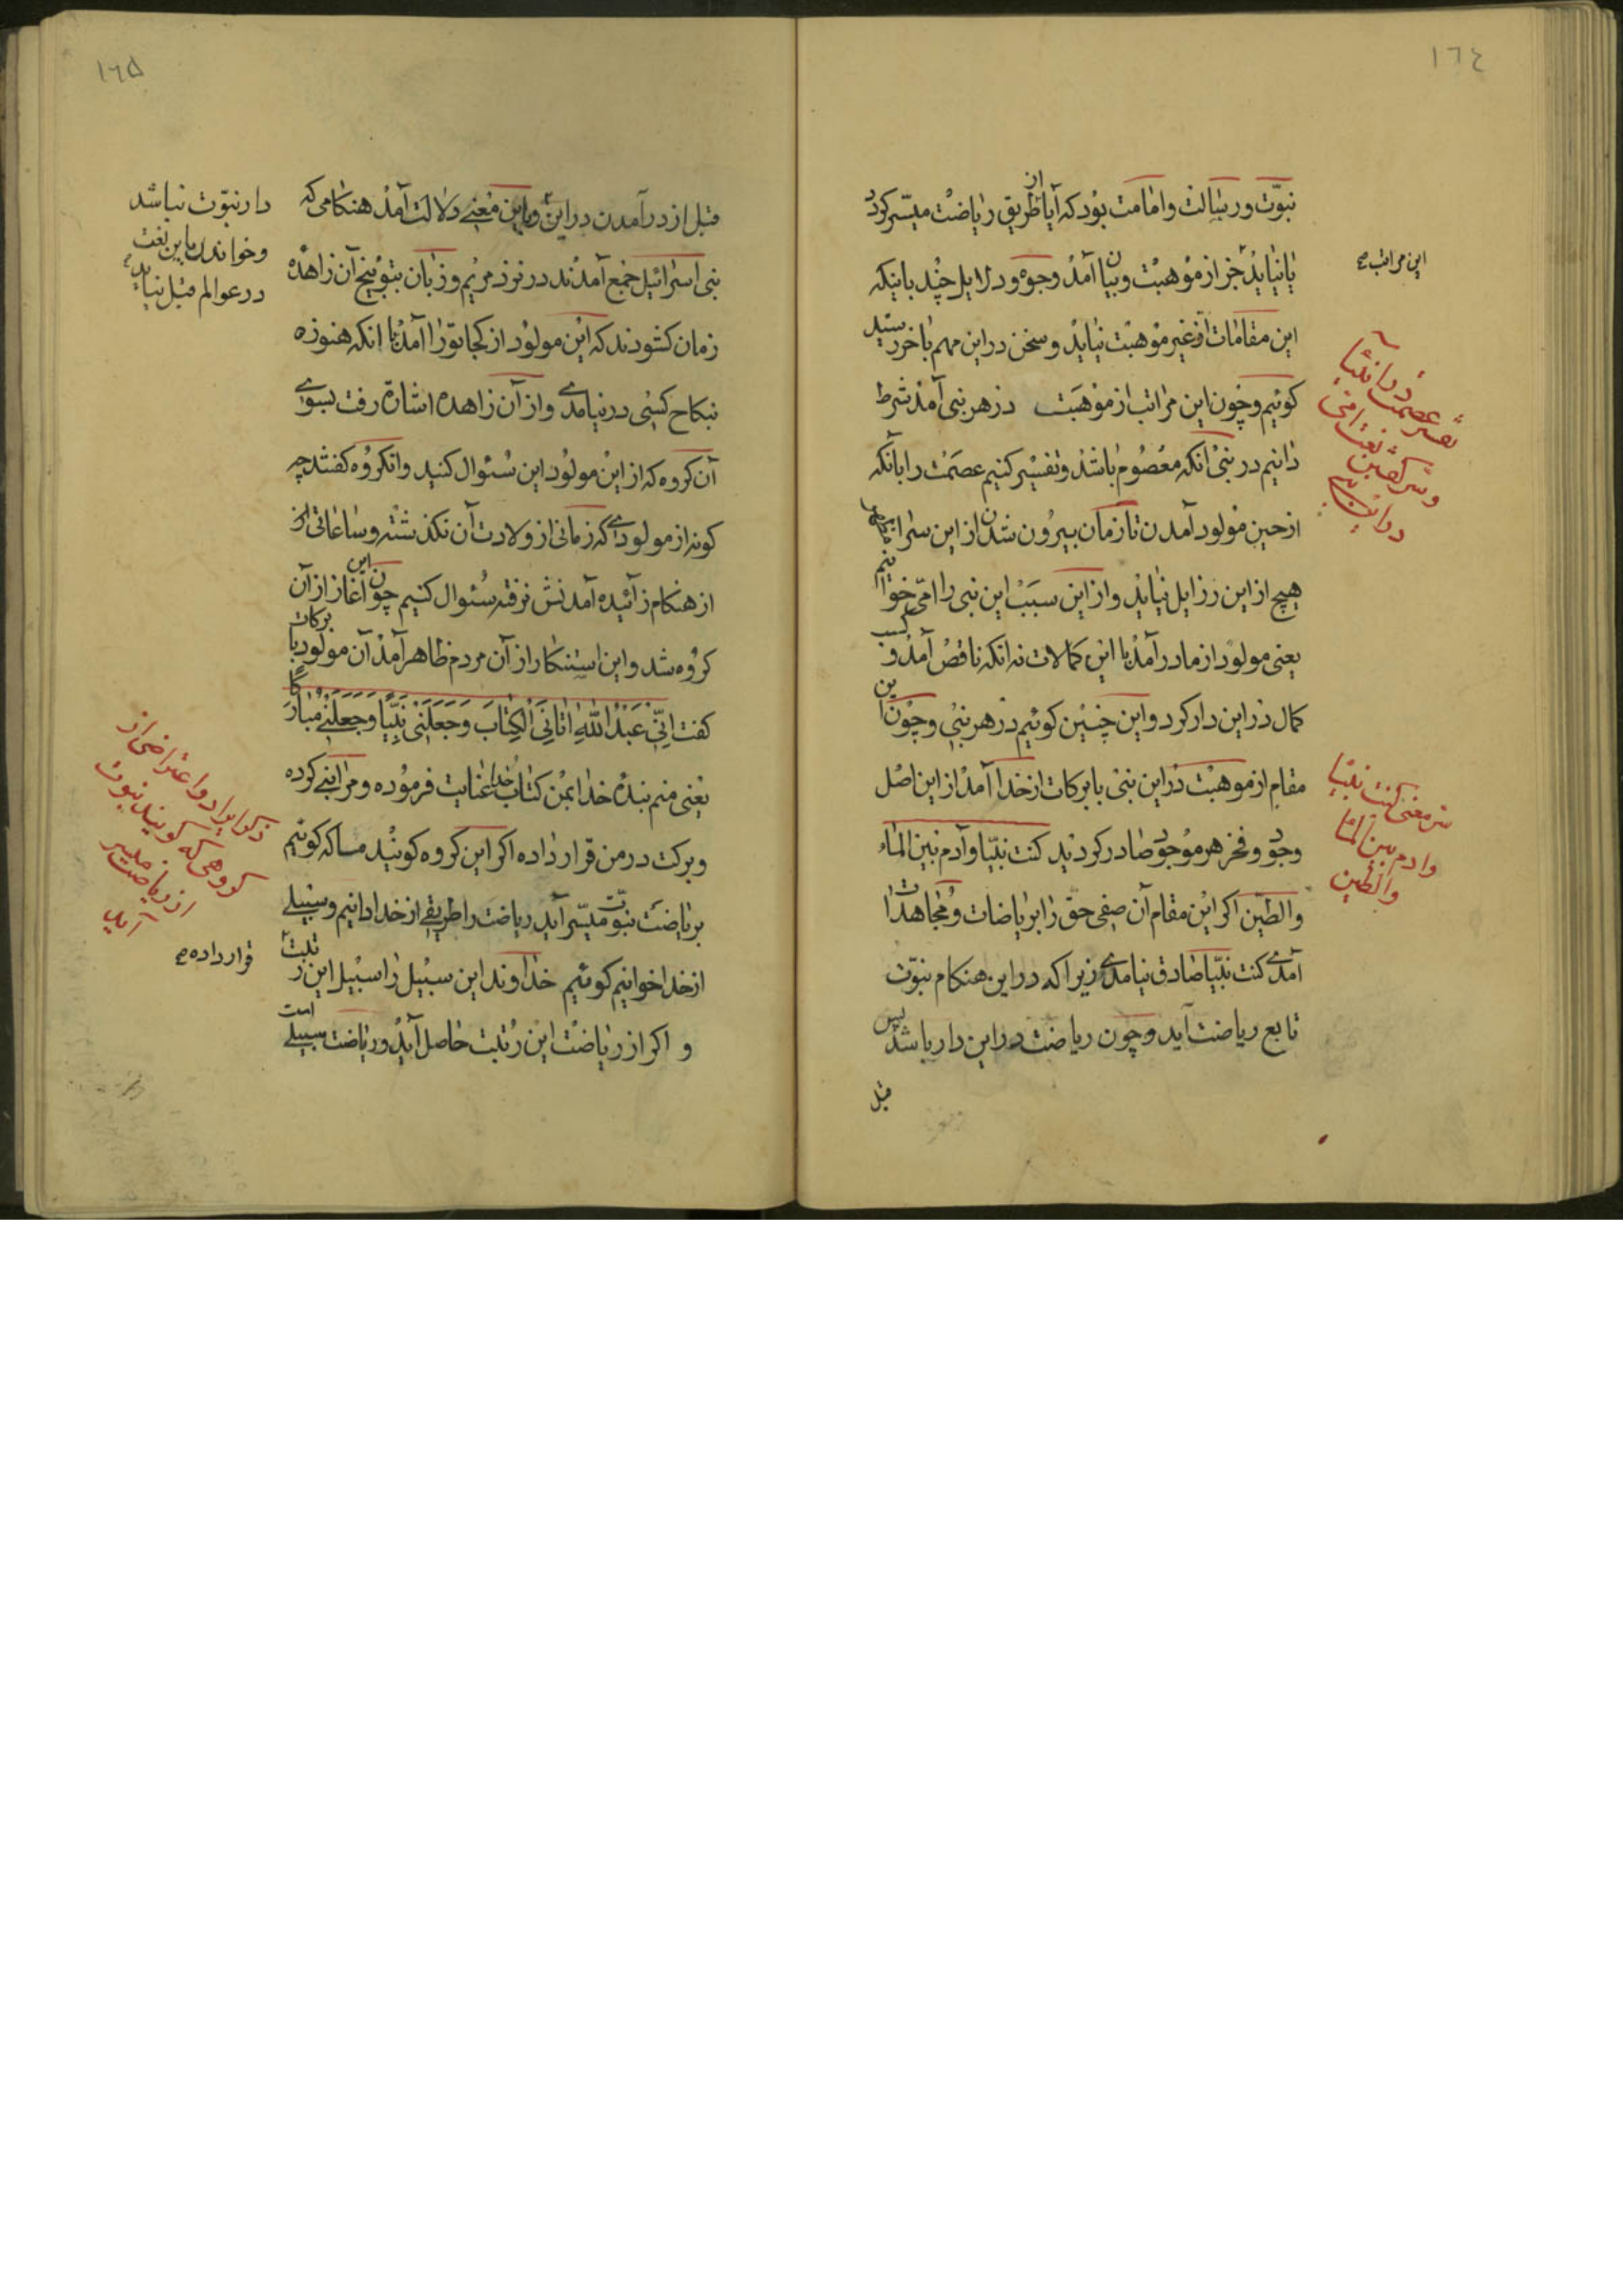 ١٦٤
نبوّت و رسالت و امامت بود که آیا از طریق ریاضت میسّر کردد
یا نیاید جز از موهبت و بیان آمد وجوه و دلایل چند باینکه
این مراتب صح
این مقامات از غیر موهبت نیاید و سخن در این مهم باخر رسید
کوئیم و چون این مراتب از موهبت در هر نبی آمد شرط
دانیم در نبی آنکه معصوم باشد و تفسیر کنیم عصمت را بآنکه
از حین مولود آمدن تا زمان بیرون شدن از این سرا
هیچ از این رزایل نیاید و از این سبب این نبی را امّی خوانیم
یعنی مولود از مادر آمد با این کمالات نه انکه ناقص آمد و کسب
کمال در این دار کرد و این چنین کوئیم در هر نبی و چون این
مقام از موهبت در این نبی با برکات از خدا آمد از این اصل
وجود و فخر هر موجود صادر کردید کنت نبیّا و آدم بین الماء
والطین اکر این مقام آن صفی حق را بر ریاضات و مجاهدات
آمدی کنت نبیّا صادق نیامدی زیرا که در این هنکام نبوّت
تابع ریاضت آید و چون ریاضت در این دار باشد پس
قبل
تفسیر عصمت در انبیا
سر معنی کنت نبیّا
وادم بین الماء
والطین
١٦٥
قبل از در آمدن در این
دار نبوّت نباشد
و خواندن باین نعت
در عوالم قبل نیاید
و باین معنی دلالت آمد هنکامی که
بنی اسرائیل جمع آمدند در نزد مریم و زبان بتوبیخ آن زاهده
زمان کشودند که این مولود از کجا تورا آمد با انکه هنوز به
نکاح کسی در نیامدی و از آن زاهده اشاره رفت بسوی
آن کروه که از این مولود این سئوال کنید و انکروه کفتند چه
کونه از مولودی که زمانی از ولادت آن نکذشته و ساعاتی از
از هنکام زائیده آمدنش نرفته سئوال کنیم چون این آغاز از آن
کروه شد و این استنکار از آن مردم ظاهر آمد آن مولود با برکات
کفت اِنّی عَبْدُ اللّٰهِ اٰتانِیَ الْکِتٰابَ وَ جَعَلَنی نَبِیّاً وَ جَعَلَنی مُبٰارَکاً
یعنی منم بنده خدا بمن کتاب خدا عنایت فرموده و مرا نبی کرده
و برکت در من قرار داده اکر این کروه کویند مسا که کوئیم
بریاضت نبوّت میسّر آید ریاضت را طریقی از خدا دانیم و سبیلی
از خدا خوانیم کوئیم خداوند این سبیل را سبیل این رتبت
قرار داده صح
و اکر از ریاضت این رتبت حاصل آید و ریاضت سبیلی است
ذکر ایراد و اعتراضی از
کروهی که کویند نبوت
از ریاضت میسر
آید